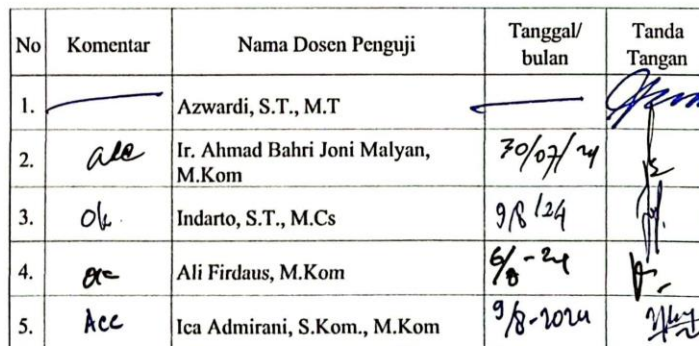 No Komentar Nama Dosen Penguji Tanggal/ bulan Tanda Tangan
1. Azwardi, S.T., M.T
2. acc Ir. Ahmad Bahri Joni Malyan, M.Kom 30/07/24
3. Ok Indarto, S.T., M.Cs 9/8/24
4. Ali Firdaus, M.Kom 6/8-24
5. Acc Ica Admirani, S.Kom., M.Kom 9/8-2024